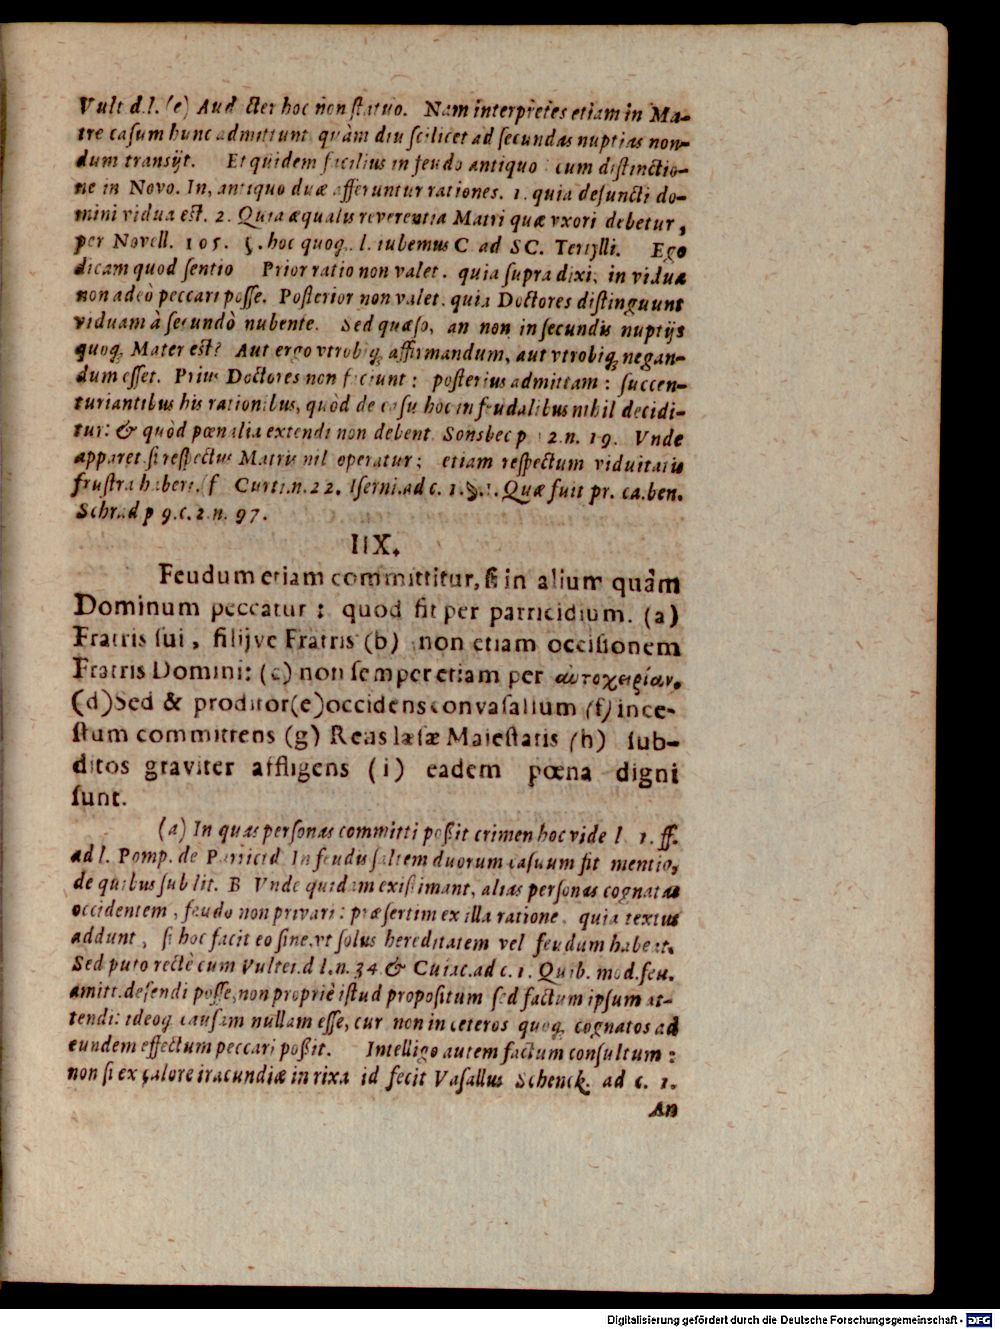 Vult d.l. (e) Aud cter hoc non statuo. Nam interpretes etiam in Ma-
tre casum hunc admittunt quàm diu scilicet ad secundas nuptias non-
dum transijt. Et quidem facilius in feudo antiquo cum distinctio-
ne in Novo. In, antiquo duæ afferuntur rationes. 1. quia defuncti do-
mini vidua est. 2. Quia æqualis reverentia Matri quæ vxori debetur,
per Novell. 105. §. hoc quoq. l. iubemus C ad SC. Tertylli. Ego
dicam quod sentio Prior ratio non valet. quia supra dixi, in vidua
non adeò peccari posse. Posterior non valet. quia Doctores distinguunt
viduam à secundò nubente. Sed quæso, an non in secundis nuptijs
quoq, Mater est? Aut ergo vtrobiq, affirmandum, aut vtrobiq, negan-
dum esset. Prius Doctores non faciunt: posterius admittam: succen-
turiantibus his rationibus, quòd de casu hoc in feudalibus nihil decidi-
tur: & quòd pœnalia extendi non debent. Sonsbec p 2. n. 19. Vnde
apparet si respectus Matris nil operatur; etiam respectum viduitatis
frustra haberi. (f Curti.n.22. Iserni.ad c. 1. §.1. Quæ fuit pr. ca.ben.
Schrad p 9. c. 2. n. 97.
IIX.
Feudum etiam committitur, si in alium quàm
Dominum peccatur: quod fit per parricidium. (a)
Fratris sui, filijve Fratris (b) non etiam occisionem
Fratris Domini: (c) non semper etiam per αυτοχειρίαν.
(d) Sed & proditor (e) occidens convasallum (f) ince-
stum committens (g) Reas læsæ Maiestatis (h) sub-
ditos graviter affligens (i) eadem pœna digni
sunt.
(a) In quas personas committi poßit crimen hoc vide l 1. ff.
ad l. Pomp. de Parricid In feudis saltem duorum casuum fit mentio,
de quibus sub lit. B Vnde quidam existimant, alias personas cognatas
occidentem, feudo non privari: præsertim ex illa ratione. quia textus
addunt, si hoc facit eo fine, vt solus hereditatem vel feudum habeat.
Sed puto rectè cum Vultei.d l.n.34 & Cuiac.ad c. 1. Quib. mod.feu.
amitt.defendi posse, non propriè istud propositum sed factum ipsum at-
tendi: ideoq causam nullam esse, cur non in ceteros quoq, cognatos ad
eundem effectum peccari poßit. Intelligo autem factum consultum:
non si ex calore iracundiæ in rixa id fecit Vasallus Schenck. ad c. 1.
An
Digitalisierung gefördert durch die Deutsche Forschungsgemeinschaft - DFG